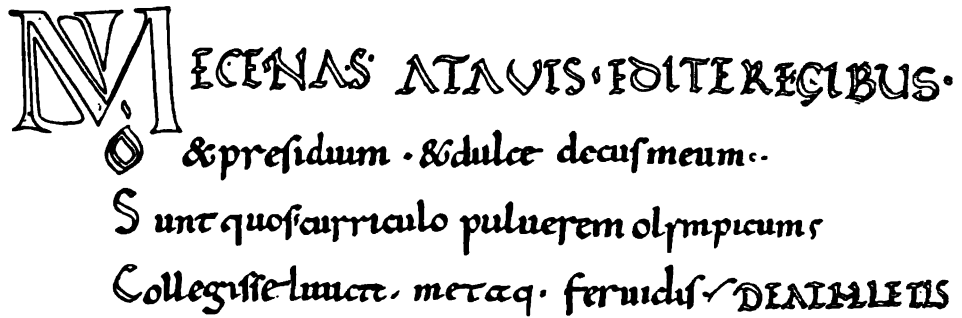 MECENAS ATAVIS · EDITE REGIBUS ·
O &preſidium · &dulce decuſ meum
Sunt quoſ curriculo puluerem olympicum
Collegiſſe iuuat. metaq. feruidiſ DE ATHLETIS